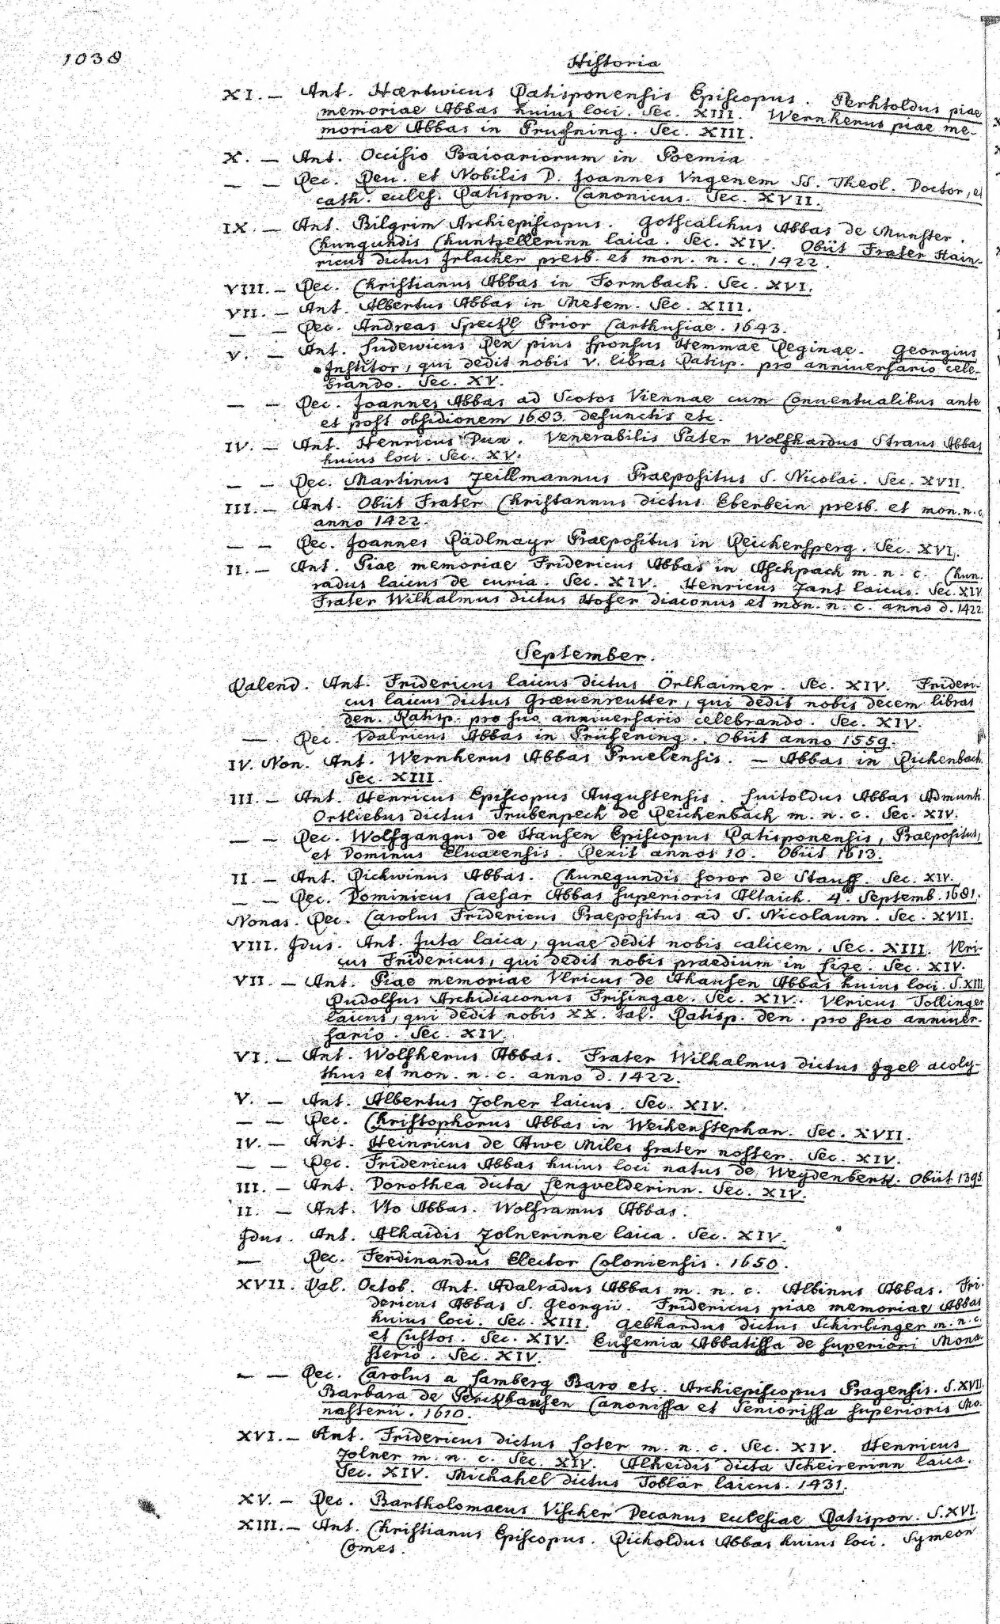 1038
Historia
XI. — Ant. Haertwicus Ratisponensis Episcopus. Perhtoldus piae
memoriae Abbas huius loci. Sec. XIII. Wernherus piae me-
moriae Abbas in Prufning. Sec. XIII.
X. — Ant. Occisio Baioariorum in Poemia
— — Rec. Reu. et Nobilis D. Joannes Vngenem SS. Theol. Doctor, et
cath. eccles. Ratispon. Canonicus. Sec. XVII.
IX. — Ant. Pilgrim Archiepiscopus. Gotscalchus Abbas de Munster.
Chungundis Chuntzellerinn laica. Sec. XIV. Obiit Frater Hain-
ricus dictus Jrlacher presb. et mon. n. c. 1422.
VIII. — Rec. Christianus Abbas in Formbach. Sec. XVI.
VII. — Ant. Albertus Abbas in Metem. Sec. XIII.
— — Rec. Andreas Speckl Prior Carthusiae. 1643.
V. — Ant. Ludewicus Rex pius sponsus Hemmae Reginae. Georgius
Institor, qui dedit nobis V. libras Ratisp. pro anniversario cele-
brando. Sec. XV.
— — Rec. Joannes Abbas ad Scotos Viennae cum Conuentualibus ante
et post obsidionem 1683. defunctis etc.
IV. — Ant. Henricus Dux. Venerabilis Pater Wolfhardus Straus Abbas
huius loci. Sec. XV.
— — Rec. Martinus Zeillmannus Praepositus S. Nicolai. Sec. XVII.
III. — Ant. Obiit Frater Christannus dictus Eberbein presb. et mon. n. c.
anno 1422.
— — Rec. Joannes Rädlmayr Praepositus in Reichensperg. Sec. XVI.
II. — Ant. Piae memoriae Fridericus Abbas in Aschpach m. n. c. Chun-
radus laicus de curia. Sec. XIV. Henricus Zant laicus. Sec. XIV
Frater Wilhalmus dictus Hofer diaconus et mon. n. c. anno d. 1422.
September.
Kalend. Ant. Fridericus laicus dictus Örlhaimer. Sec. XIV. Frideri-
cus laicus dictus Graevenreutter, qui dedit nobis decem libras
den. Ratisp. pro suo anniversario celebrando. Sec. XIV.
— Rec. Vdalricus Abbas in Prüfening. Obiit anno 1559.
IV. Non. Ant. Wernherus Abbas Pruelensis. — Abbas in Richenbach
Sec. XIII.
III. — Ant. Henricus Episcopus Augustensis. Luitoldus Abbas Admunt.
Ortliebus dictus Trubenpeck de Reichenbach m. n. c. Sec. XIV.
— — Rec. Wolfgangus de Hausen Episcopus Ratisponensis, Praepositus,
et Dominus Eluacensis. Rexit annos 10. Obiit 1613.
II. — Ant. Rickwinus Abbas. Chunegundis soror de Stauff. Sec. XIV.
— — Rec. Dominicus Caesar Abbas superioris Altaich. 4. Septemb. 1681.
Nonas. Rec. Carolus Fridericus Praepositus ad S. Nicolaum. Sec. XVII.
VIII. Jdus. Ant. Juta laica, quae dedit nobis calicem. Sec. XIII. Vlri-
cus Fridericus, qui dedit nobis praedium in Size. Sec. XIV.
VII. — Ant. Piae memoriae Vlricus de Ahausen Abbas huius loci. S. XIII
Rudolfus Archidiaconus Frisingae. Sec. XIV. Vlricus Tollinger
laicus, qui dedit nobis XX. tal. Ratisp. den. pro suo anniver-
sario. Sec. XIV.
VI. — Ant. Wolfherus Abbas. Frater Wilhalmus dictus Jgel acoly-
thus et mon. n. c. anno d. 1422.
V. — Ant. Albertus Zolner laicus. Sec. XIV.
— — Rec. Christophorus Abbas in Weihenstephan. Sec. XVII.
IV. — Ant. Heinricus de Awe Miles frater noster. Sec. XIV.
— — Rec. Fridericus Abbas huius loci natus de Weydenberg. Obiit 1395
III. — Ant. Dorothea dicta Lengvelderinn. Sec. XIV.
II. — Ant. Vto Abbas. Wolframus Abbas.
Jdus. Ant. Alhaidis Zolnerinne laica. Sec. XIV.
— Rec. Ferdinandus Elector Coloniensis. 1650.
XVII. Kal. Octob. Ant. Adalradus Abbas m. n. c. Albinus Abbas. Fri-
dericus Abbas S. Georgii. Fridericus piae memoriae Abbas
huius loci. Sec. XIII. Gebhardus dictus Schirlinger m. n. c.
et Custos. Sec. XIV. Eufemia Abbatissa de superiori Mona-
sterio. Sec. XIV.
— — Rec. Carolus a Lamberg Baro etc. Archiepiscopus Pragensis. S. XVII.
Barbara de Perckhausen Canonissa et Seniorissa superioris Mo-
nasterii. 1610.
XVI. — Ant. Fridericus dictus Loter m. n. c. Sec. XIV. Henricus
Zolner m. n. c. Sec. XIV. Alheidis dicta Scheirerinn laica.
Sec. XIV. Michahel dictus Toblar laicus. 1431.
XV. — Rec. Bartholomaeus Vischer Decanus ecclesiae Ratispon. S. XVI.
XIII. — Ant. Christianus Episcopus. Richoldus Abbas huius loci. Symeon
Comes.